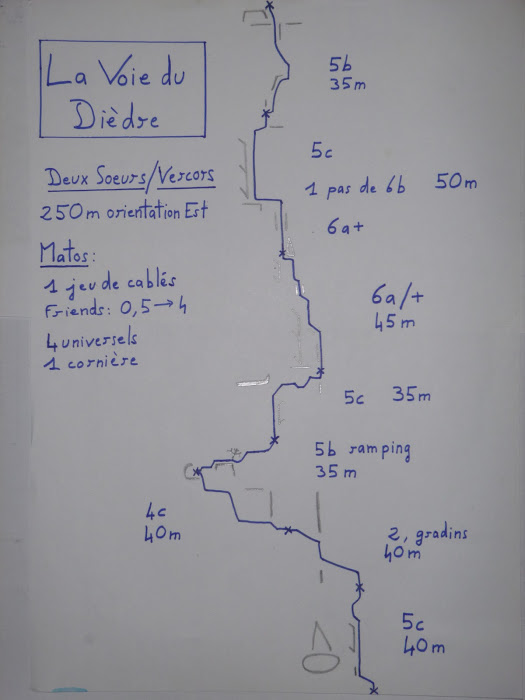 La Voie du
Dièdre
Deux Soeurs/Vercors
250m orientation Est
Matos:
1 jeu de cablés
Friends: 0,5→4
4 universels
1 cornière
5b
35m
5c
1 pas de 6b 50m
6a+
6a/+
45m
5c 35m
5b ramping
35m
4c
40m
2, gradins
40m
5c
40m